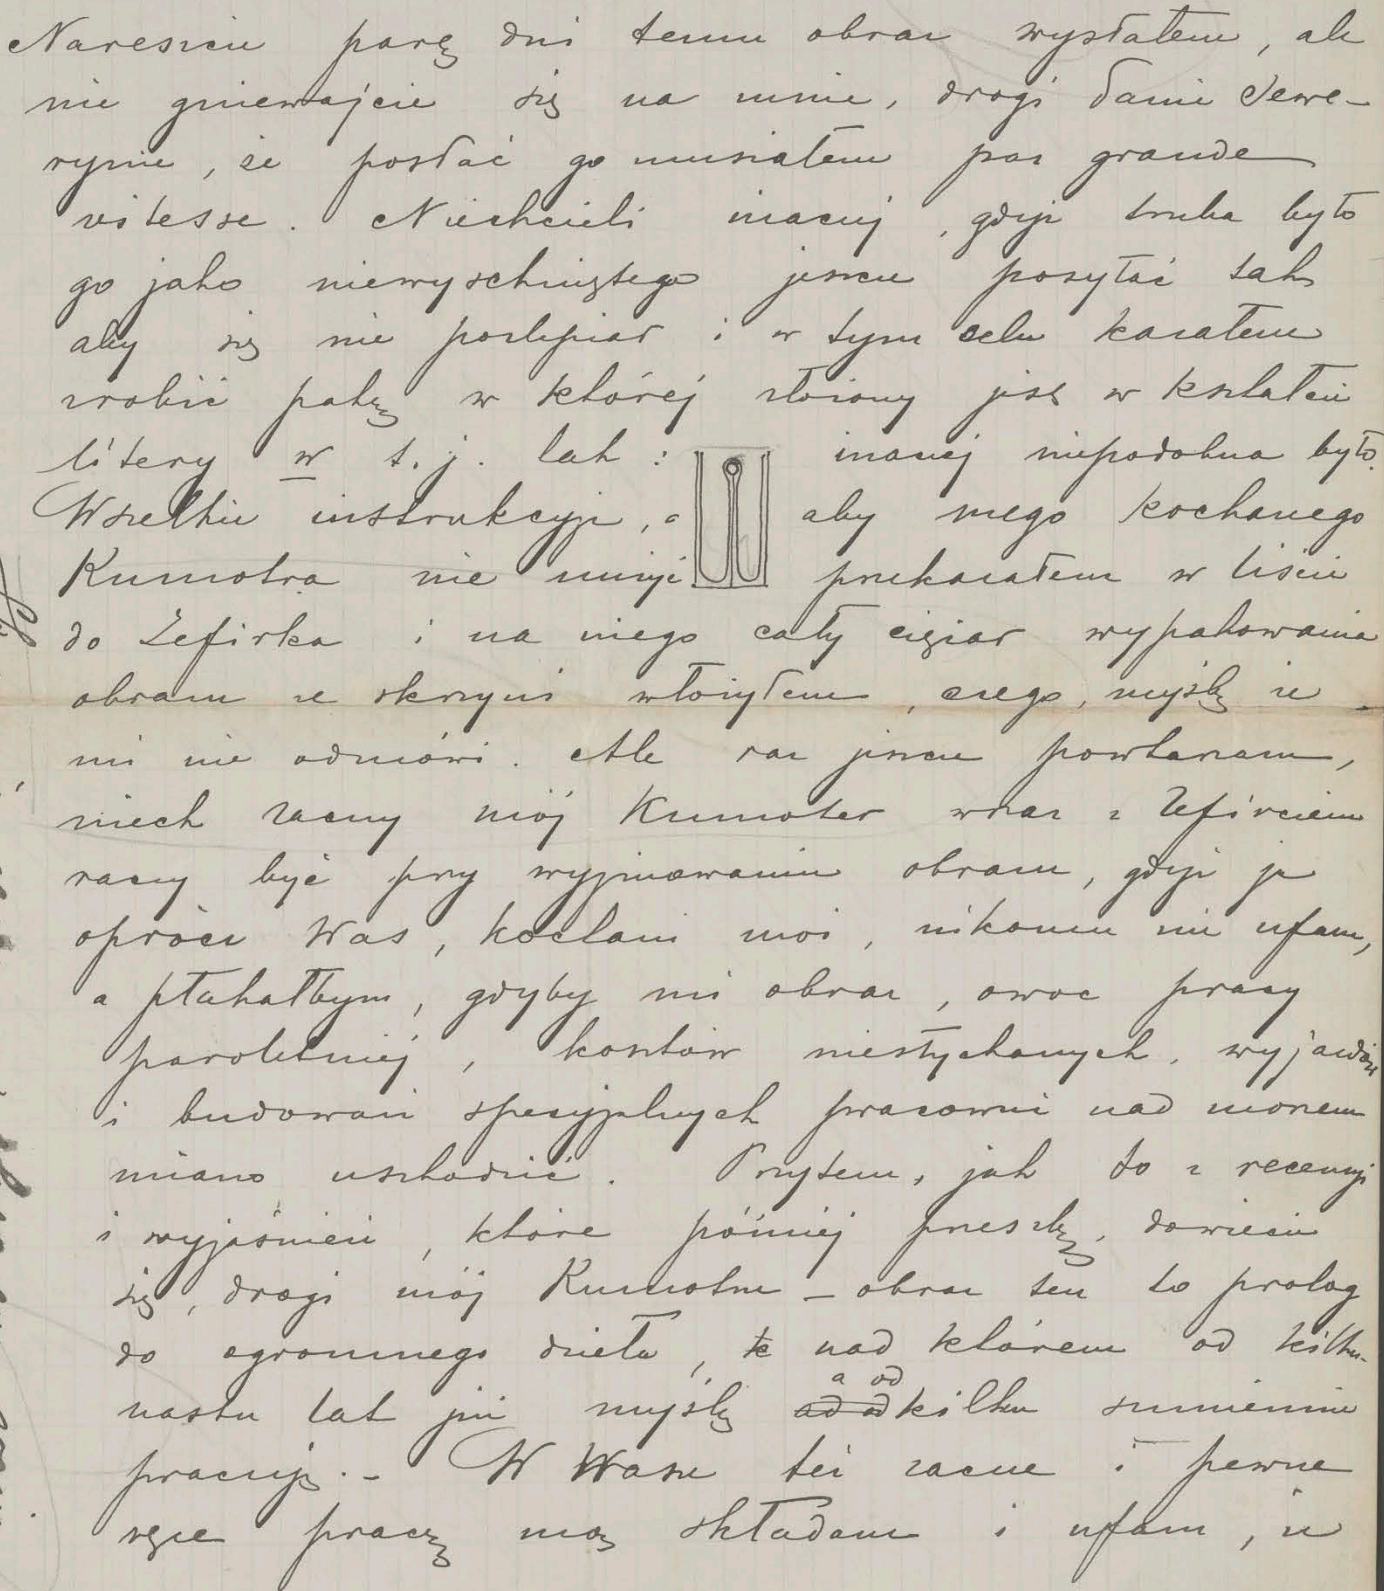 Nareszcie parę dni temu obraz wysłałem, ale
nie gniewajcie się na mnie, drogi Panie Sewe-
rynie, że posłać go musiałem par grande
vitesse. Niechcieli inaczej, gdyż trzeba było
go jako niewyschniętego jeszcze posyłać tak
aby się nie poślepiał i w tym celu kazałem
zrobić pakę w której złożony jest w kształcie
litery w t.j. tak : inaczej niepodobna było.
Wszelkie instrukcyje, a aby mego kochanego
Kumotra nie nużyć przekazałem w liście
do Zefirka i na niego cały ciężar wypakowania
obrazu ze skrzyni włożyłem, czego, myślę że
mi nie odmówi. Ale raz jeszcze powtarzam,
niech zacny mój Kumoter wraz z Zefirciem
raczy być przy wyjmowaniu obrazu, gdyż ja
oprócz Was, kochani moi, nikomu nie ufam,
a płakałbym, gdyby mi obraz, owoc pracy
paroletniej, kosztów niesłychanych, wyjazdów
i budowań specyjalnych pracowni nad morzem
miano uszkodzić. Przytem, jak to z recenzyi
i wyjaśnień, które później przeszlę, dowiecie
się, drogi mój Kumotrze – obraz ten to prolog
do ogromnego dzieła, nad którem od kilku-
nastu lat już myślę a od kilku sumiennie
pracuję. – W Wasze też zacne i pewne
ręce pracę mą składam i ufam, że